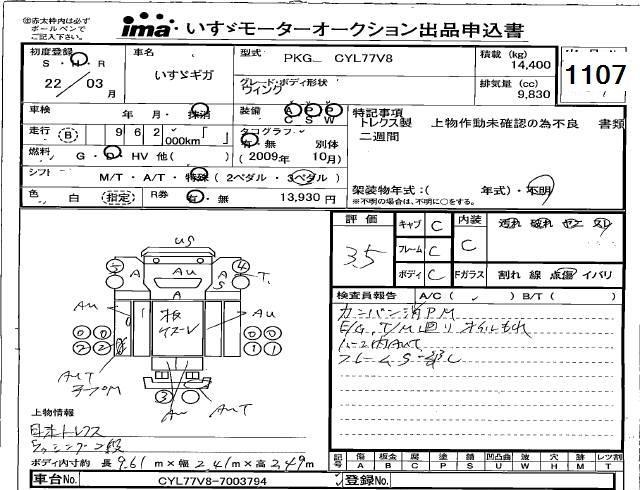 ㊟赤太枠内は必ず
ボールペンで
ご記入下さい。
ima いすゞモーターオークション出品申込書
初度登録 S・H・R
22/03月
車名
いすゞギガ
型式 PKG CYL77V8
グレード・ボディ形状
ウイング
積載 (kg)
14,400
排気量 (cc)
9,830
1107
車検 年 月・抹消
装備 A P P
C S W
走行 B 962,000km
タコグラフ
有・無 別体
(2009年 10月)
燃料 G・D・HV 他( )
シフト M/T・A/T・特殊 (2ペダル・3ペダル)
色 白 (指定) R券 有・無 13,930円
特記事項
トレクス製 上物作動未確認の為不良 書類
二週間
架装物年式:( 年式)・不明
※不明の場合は、不明に○をする。
評価 3.5
キャブ C
フレーム C
ボディ C
内装 C
汚れ 破れ ヤニ スレ
Fガラス 割れ 線 点傷 イバリ
検査員報告 A/C( ✓ )B/T( )
E/G, T/M回り オイルもれ
US
Au
A A
A S
T
Au Au
板
AUT
Au AUT
上物情報
日本トレクス
ラッシング2段
ボディ内寸約 長9.61m×幅2.41m×高2.49m
記号 傷 板金 腐 塗 錆 凹凸曲 波 穴 跡 レツ割
A B C P S U Y L W H M T
車台No. CYL77V8-7003794 登録No.